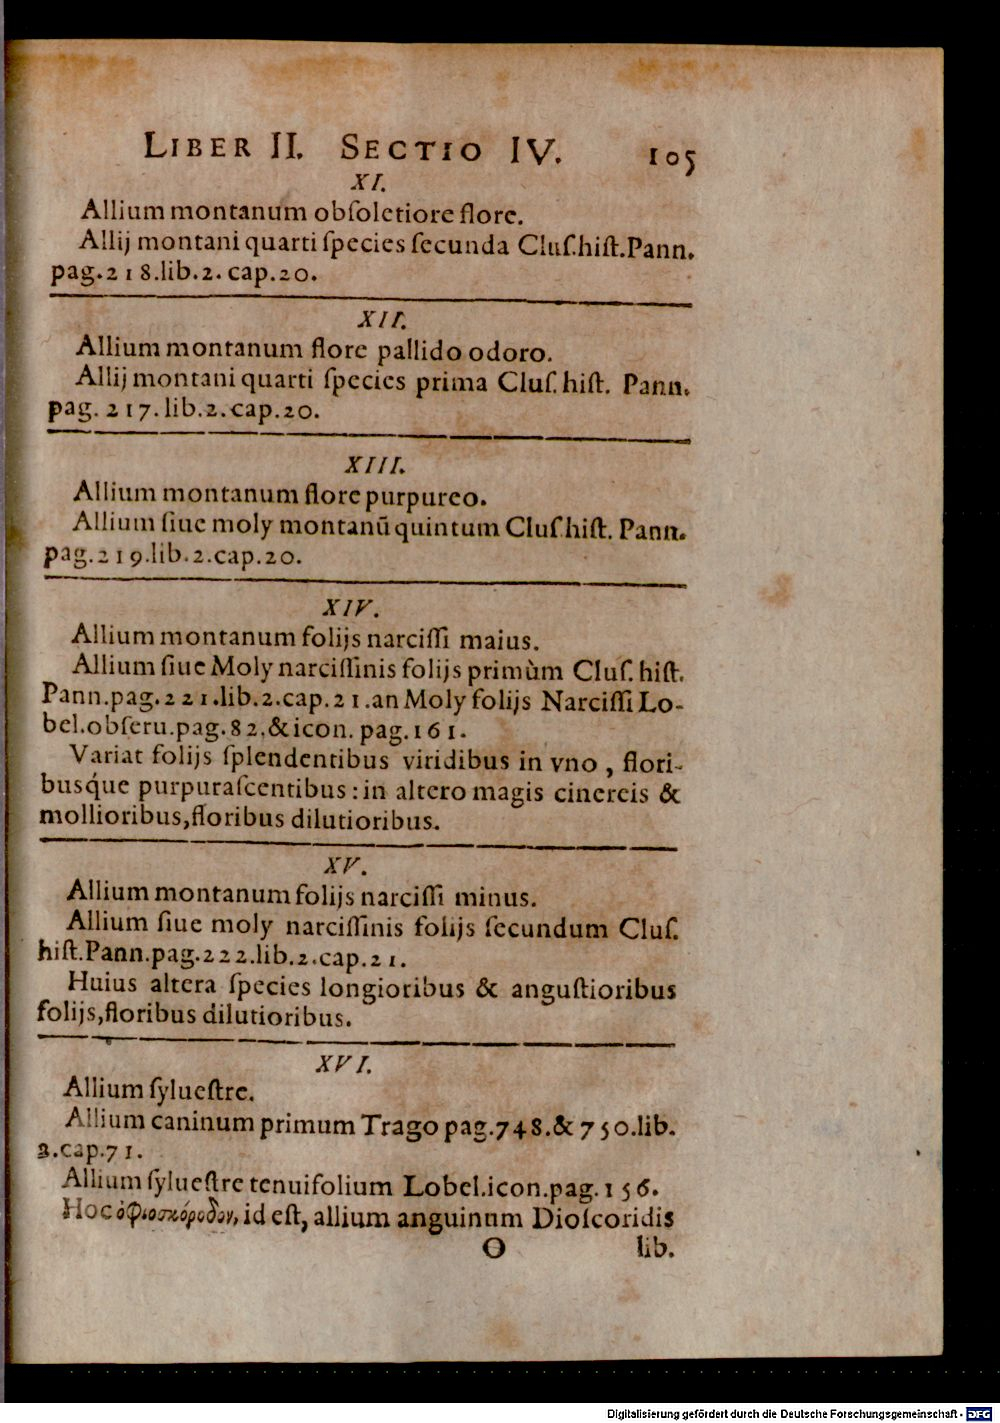 LIBER II. SECTIO IV. 105
XI.
Allium montanum obſoletiore flore.
Allij montani quarti ſpecies ſecunda Cluſ.hiſt.Pann.
pag.218.lib.2.cap.20.
XII.
Allium montanum flore pallido odoro.
Allij montani quarti ſpecies prima Cluſ.hiſt. Pann.
pag. 217.lib.2.cap.20.
XIII.
Allium montanum flore purpureo.
Allium ſiue moly montanū quintum Cluſ.hiſt. Pann.
pag.219.lib.2.cap.20.
XIV.
Allium montanum folijs narciſſi maius.
Allium ſiue Moly narciſſinis folijs primùm Cluſ. hiſt.
Pann.pag.221.lib.2.cap.21.an Moly folijs Narciſſi Lo-
bel.obſeru.pag.82.&icon. pag.161.
Variat folijs ſplendentibus viridibus in vno , flori-
busq́ue purpuraſcentibus:in altero magis cinereis &
mollioribus,floribus dilutioribus.
XV.
Allium montanum folijs narciſſi minus.
Allium ſiue moly narciſſinis folijs ſecundum Cluſ.
hiſt.Pann.pag.222.lib.2.cap.21.
Huius altera ſpecies longioribus & anguſtioribus
folijs,floribus dilutioribus.
XVI.
Allium ſylueſtre.
Allium caninum primum Trago pag.748.&750.lib.
2.cap.71.
Allium ſylueſtre tenuifolium Lobel.icon.pag.156.
Hoc ὀφιοσκόροδον, id eſt, allium anguinum Dioſcoridis
O lib.
Digitalisierung gefördert durch die Deutsche Forschungsgemeinschaft - DFG